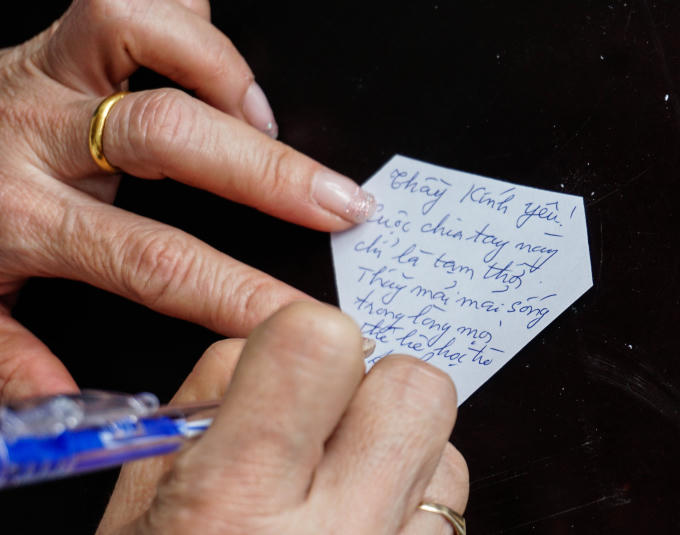 Thầy Kính yêu!
Cuộc chia tay này
chỉ là tạm thời.
Thầy mãi mãi sống
trong lòng mọi
thế hệ học trò